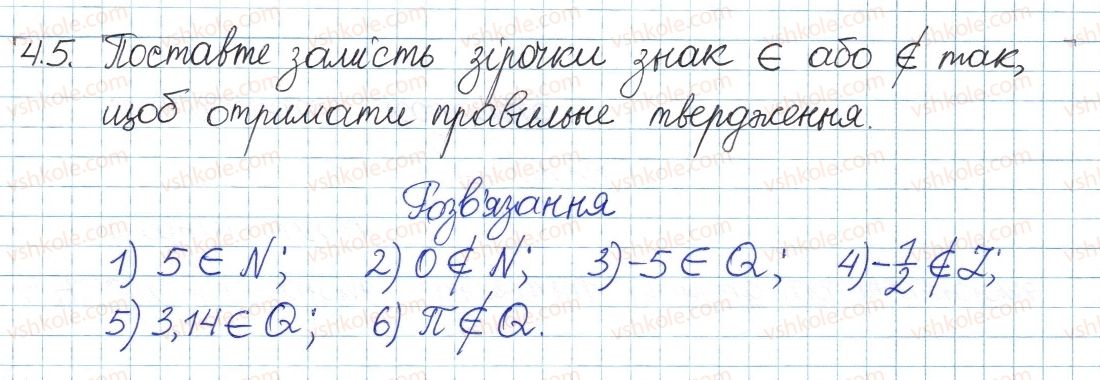 4.5. Поставте замість зірочки знак ∈ або ∉ так,
щоб отримати правильне твердження.
Розв'язання
1) 5 ∈ N; 2) 0 ∉ N; 3) -5 ∈ Q; 4) -1/2 ∉ Z;
5) 3,14 ∈ Q; 6) π ∉ Q.